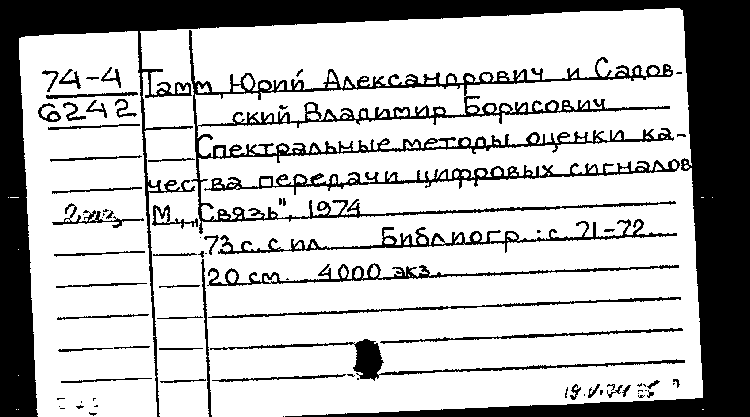 74-4 Тамм, Юрий Александрович и Садов-
6242 ский, Владимир Борисович
Спектральные методы оценки ка-
чества передачи цифровых сигналов
2 экз. М., „Связь", 1974
73 с. с ил. Библиогр.: с. 71-72.
20 см. 4000 экз.
19.V.74